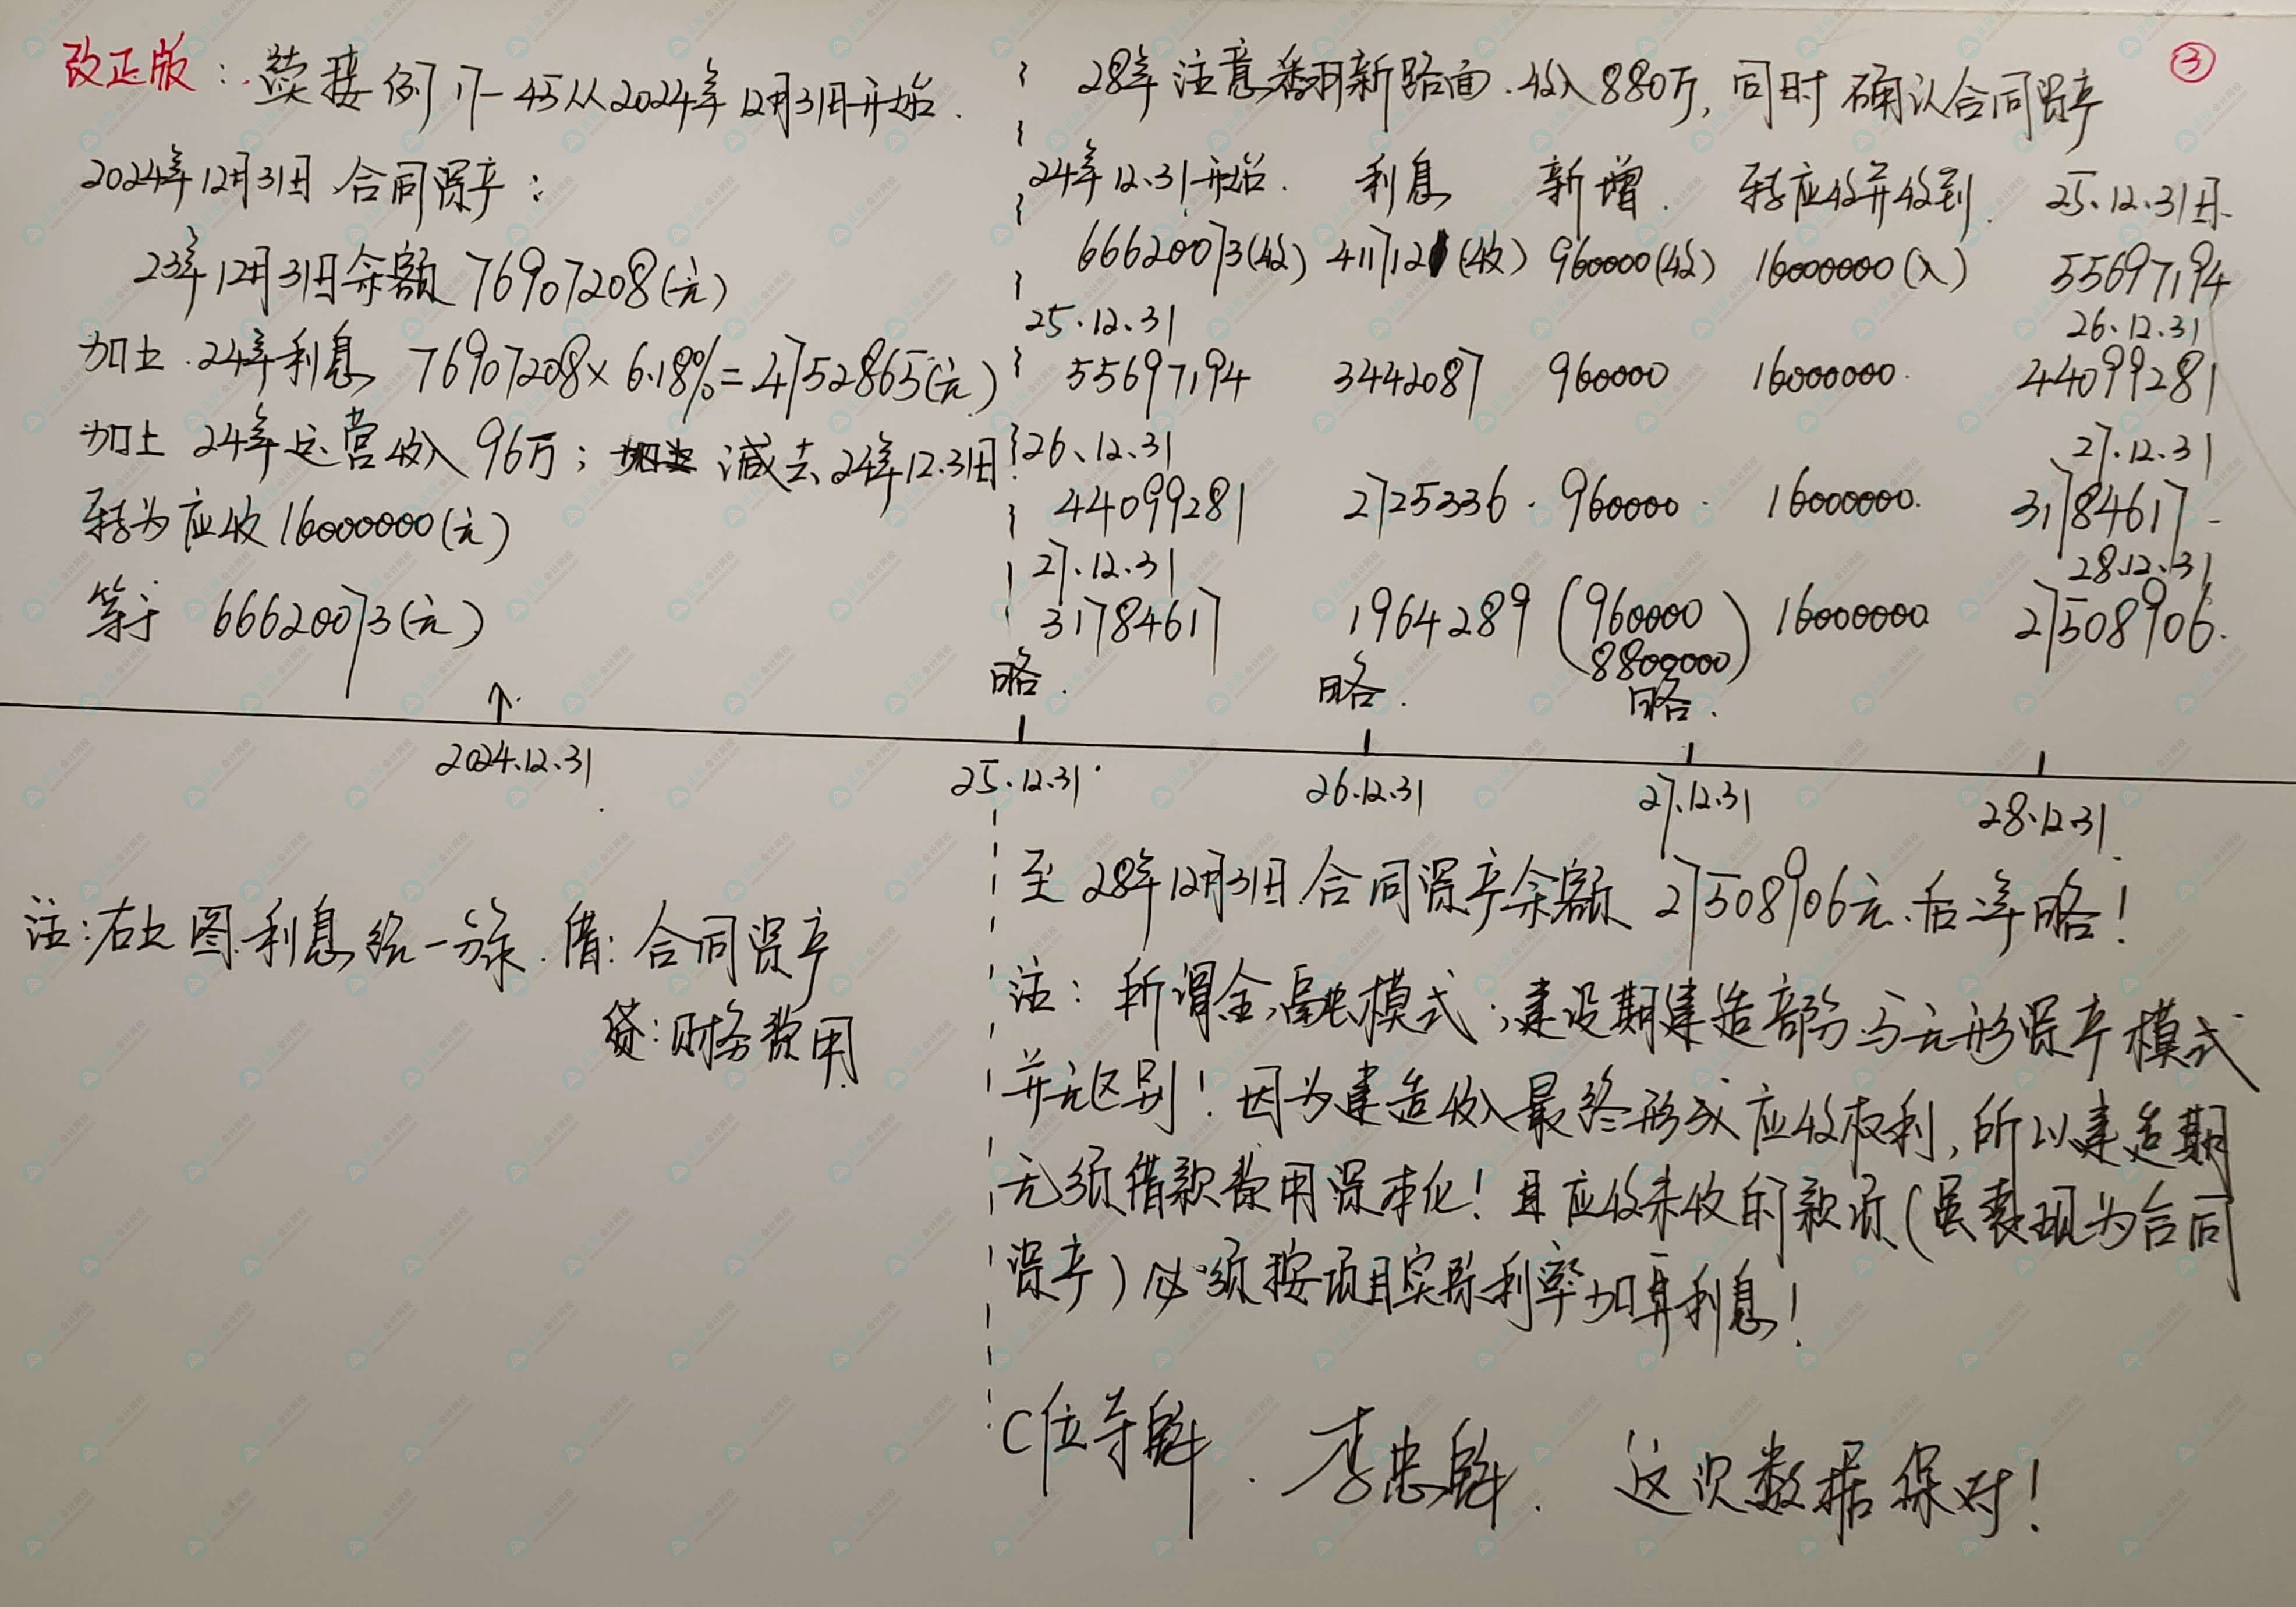 改正版：续接例17-45从2024年12月31日开始.
2024年12月31日合同资产：
23年12月31日余额 76907208(元)
加上.24年利息 76907208×6.18%=4752865(元)
加上 24年运营收入96万；减去24年12.31日
转为应收16000000(元)
等于 66620073(元)
③
28年注意翻新路面.收入880万,同时确认合同资产
24年12.31开始. 利息 新增. 转应收并收到. 25.12.31日.
66620073(收) 4117121(收) 960000(收) 16000000(入) 55697194
25.12.31 26.12.31
55697194 3442087 960000 16000000. 44099281
26.12.31 27.12.31
44099281 2725336. 960000. 16000000. 31784617
27.12.31 28.12.31
31784617 1964289 (960000 16000000 27508906.
8800000)
略. 略. 略.
↑
2024.12.31 25.12.31 26.12.31 27.12.31 28.12.31
注:右上图.利息统一分录.借:合同资产
贷:财务费用
至28年12月31日.合同资产余额 27508906元.后年略!
注: 所谓金融模式,建设期建造部分与无形资产模式
并无区别!因为建造收入最终形成应收权利,所以建造期
无须借款费用资本化!且应收未收的款项(虽表现为合同
资产)必须按项目实际利率加算利息!
C位夺魁. 李忠魁. 这次数据保对!